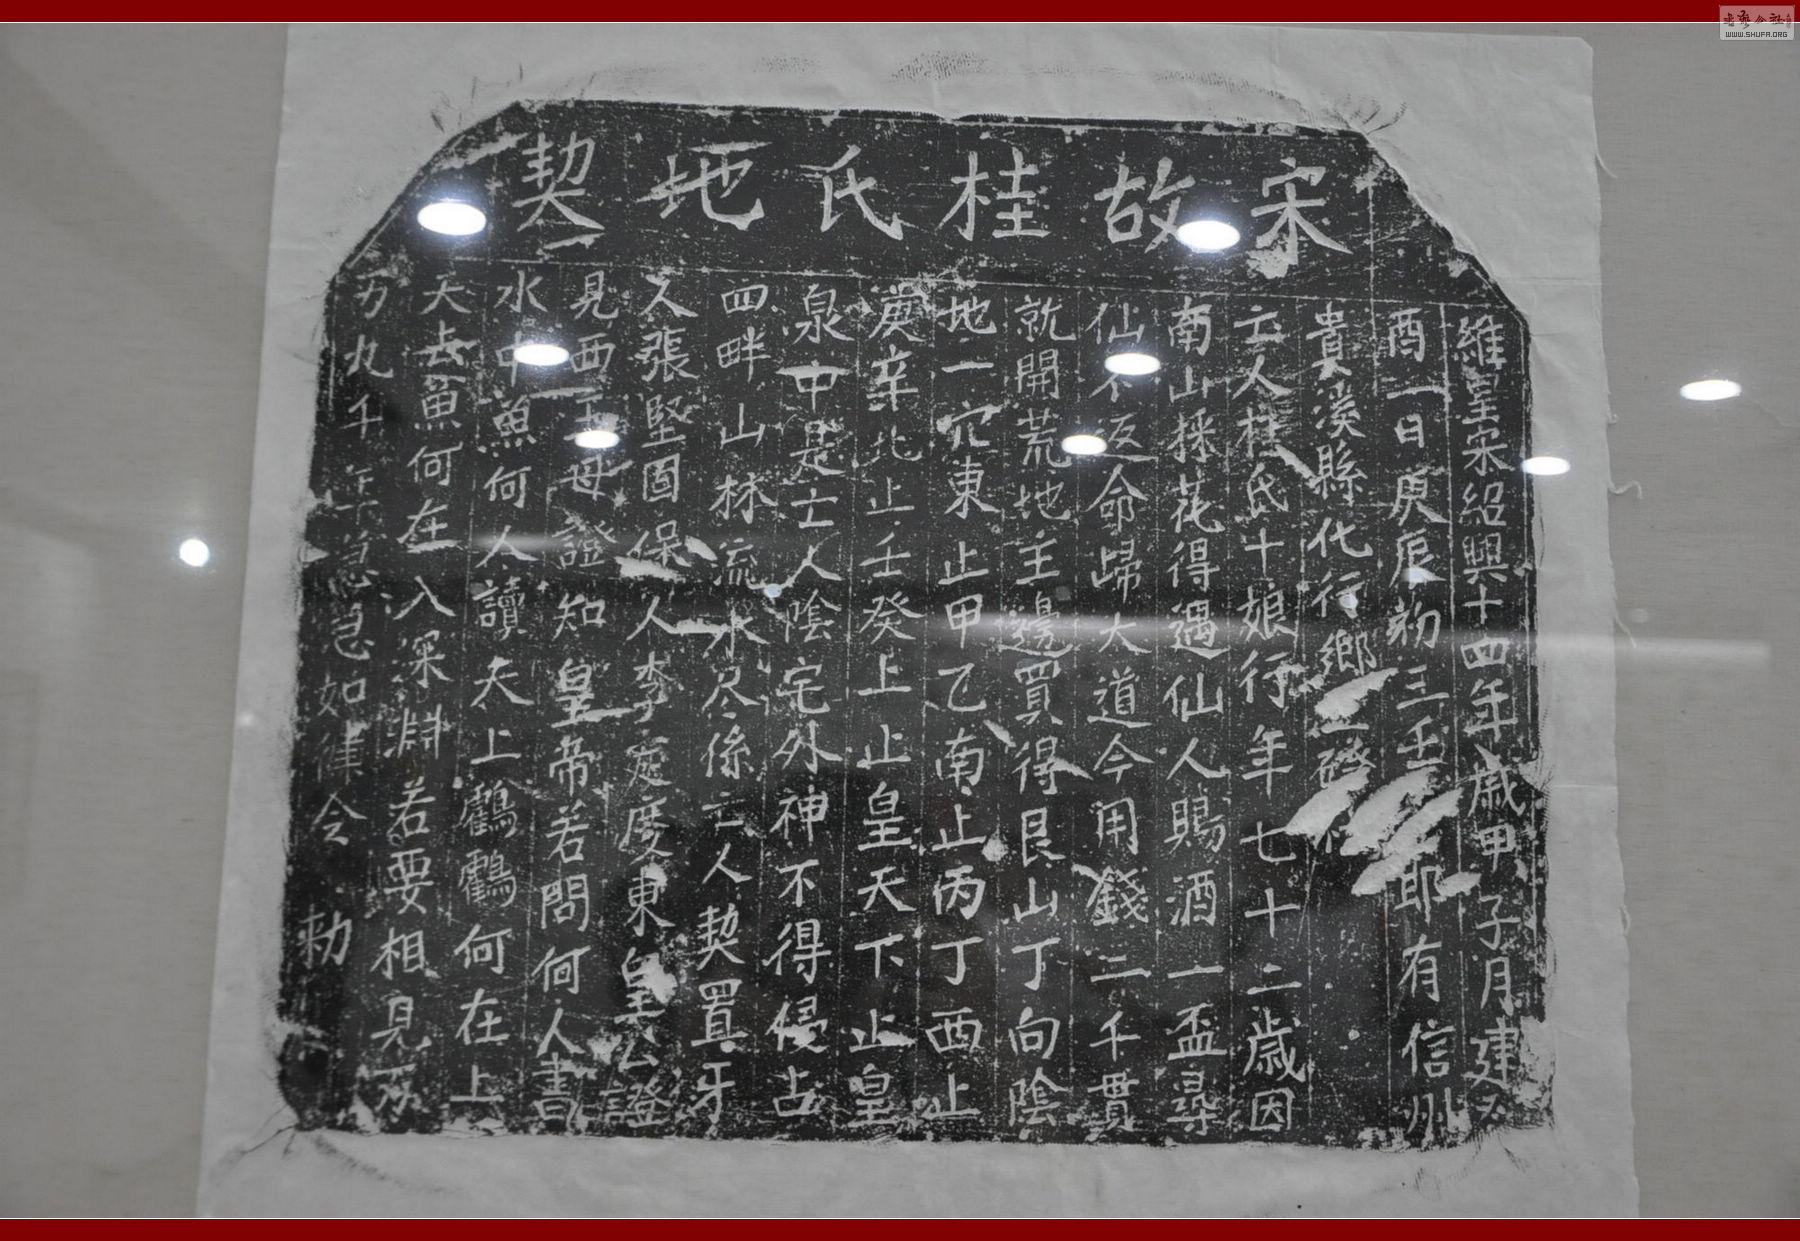 宋故桂氏地契
維皇宋紹興十四年歲甲子月建
酉一日庚辰初三壬 耶有信州
貴溪縣化行鄉
亡人桂氏十娘行年七十二歲因
南山採花得遇仙人賜酒一盃尋
仙不返命歸大道今用錢二千貫
就開荒地主邊買得艮山丁向陰
地一穴東止甲乙南止丙丁西止
庚辛北止壬癸上止皇天下止皇
泉中是士人陰宅外神不得侵占
四畔山林流水尽係亡人契置牙
人張堅固保人李定度東皇公證
見西王母證知皇帝若問何人書
水中魚何人讀天上鶴鶴何在上
天去魚何在入深淵若要相見万
万九千年急急如律令 勑
書藝公社
WWW.SHUFA.ORG